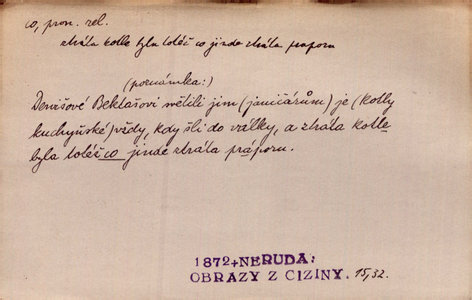 co, pron. rel.
ztráta kotle byla totéž co jinde ztráta práporu
(poznámka:)
Dervišové Bektašovi světili jim (janičárům) je (kotly
kuchyňské) vždy, kdy šli do války, a ztráta kotle
byla totéž co jinde ztráta práporu.
1872+NERUDA:
OBRAZY Z CIZINY. 15,32.